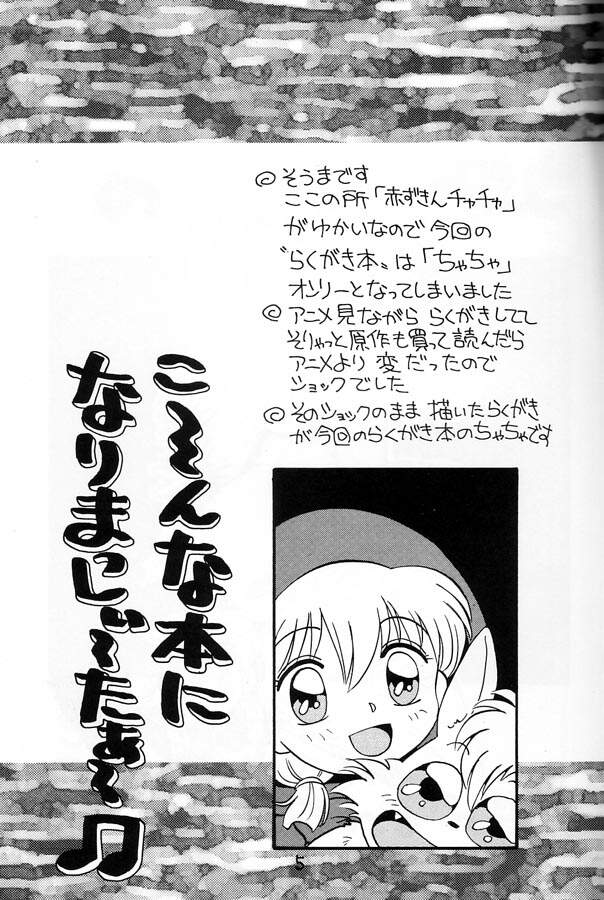 ◎そうまです
ここの所「赤ずきんチャチャ」
がゆかいなので今回の
〝らくがき本〟は「ちゃちゃ」
オンリーとなってしまいました
◎アニメ見ながら らくがきしてて
そりゃっと原作も買って読んだら
アニメより 変だったので
ショックでした
◎そのショックのまま 描いたらくがき
が今回のらくがき本のちゃちゃです
こ〜んな本に
なりまっし〜たぁ〜♫
5